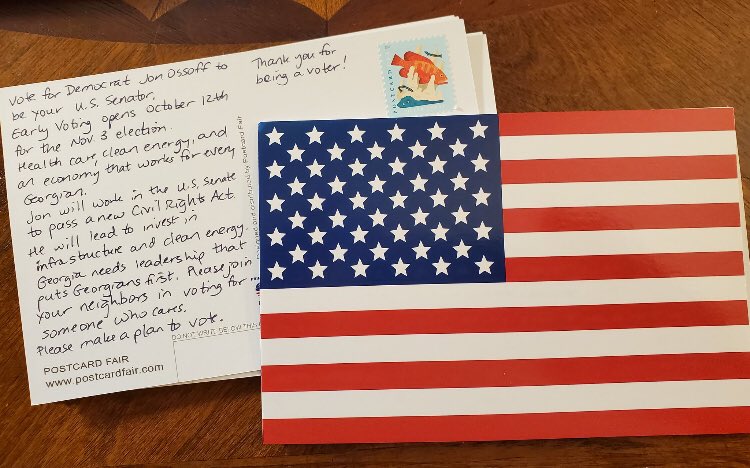 Vote for Democrat Jon Ossoff to
be your U.S. Senator.
Early Voting opens October 12th
for the Nov. 3 election.
Health care, clean energy, and
an economy that works for every
Georgian.
Jon will work in the U.S. Senate
to pass a new Civil Rights Act.
He will lead to invest in
infrastructure and clean energy.
Georgia needs leadership that
puts Georgians first. Please join
your neighbors in voting for ...
someone who cares.
Please make a plan to vote.
POSTCARD FAIR
www.postcardfair.com
Thank you for
being a voter!
POSTCARD